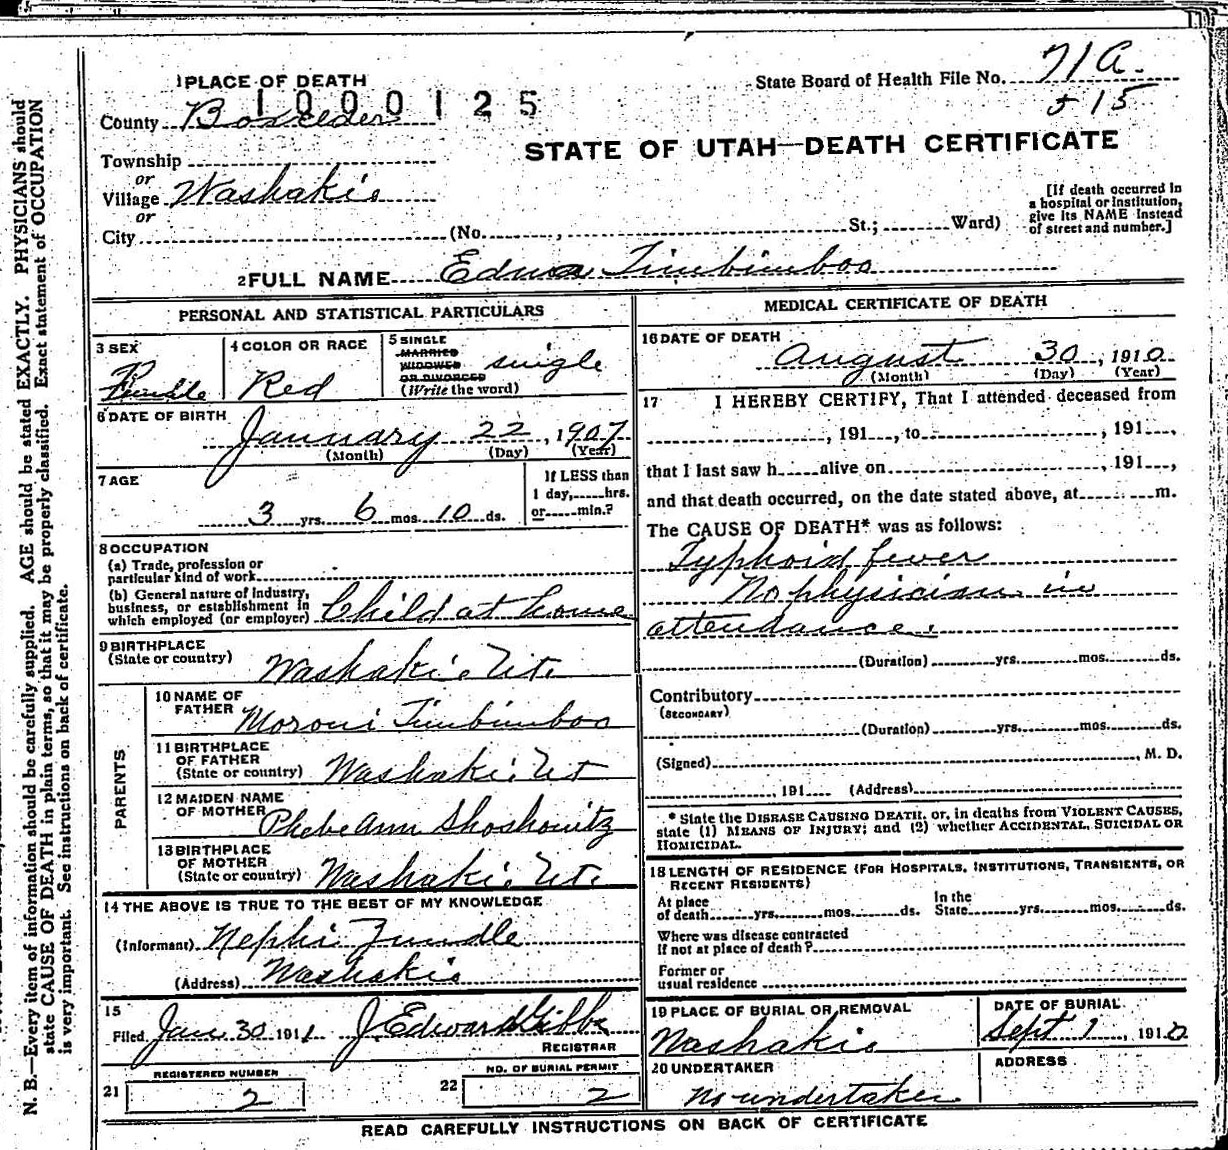 11
1 PLACE OF DEATH
1000125
County Boxelder
Township
or
Village Washakie
or
City (No. , St.; Ward)
State Board of Health File No. 71a
+ 15
STATE OF UTAH—DEATH CERTIFICATE
[If death occurred in
a hospital or institution,
give its NAME instead
of street and number.]
2 FULL NAME Edna Timbimboo
PERSONAL AND STATISTICAL PARTICULARS
3 SEX
Female
4 COLOR OR RACE
Red
5 SINGLE
MARRIED
WIDOWED
OR DIVORCED
(Write the word)
single
6 DATE OF BIRTH
January 22, 1907
(Month) (Day) (Year)
7 AGE
3 yrs. 6 mos. 10 ds.
If LESS than
1 day, hrs.
or min.?
8 OCCUPATION
(a) Trade, profession or
particular kind of work
(b) General nature of industry,
business, or establishment in
which employed (or employer) Child at home
9 BIRTHPLACE
(State or country) Washakie Ut.
PARENTS
10 NAME OF
FATHER Moroni Timbimboo
11 BIRTHPLACE
OF FATHER
(State or country) Washakie Ut
12 MAIDEN NAME
OF MOTHER Phebe Ann Shoshonitz
13 BIRTHPLACE
OF MOTHER
(State or country) Washakie Ut.
14 THE ABOVE IS TRUE TO THE BEST OF MY KNOWLEDGE
(Informant) Nephi Zundle
(Address) Washakie
15
Filed Jan 30 1911 J. Edward Gibbs
REGISTRAR
REGISTERED NUMBER
21 2
NO. OF BURIAL PERMIT
22 2
MEDICAL CERTIFICATE OF DEATH
16 DATE OF DEATH
August 30, 1910
(Month) (Day) (Year)
17 I HEREBY CERTIFY, That I attended deceased from
, 191 , to , 191 ,
that I last saw h alive on , 191 ,
and that death occurred, on the date stated above, at m.
The CAUSE OF DEATH* was as follows:
Typhoid fever
No physician in
attendance.
(Duration) yrs. mos. ds.
Contributory
(SECONDARY)
(Duration) yrs. mos. ds.
(Signed) , M. D.
, 191 (Address)
* State the DISEASE CAUSING DEATH, or, in deaths from VIOLENT CAUSES,
state (1) MEANS OF INJURY; and (2) whether ACCIDENTAL, SUICIDAL OR
HOMICIDAL.
18 LENGTH OF RESIDENCE (FOR HOSPITALS, INSTITUTIONS, TRANSIENTS, OR
RECENT RESIDENTS)
At place
of death yrs. mos. ds. In the
State yrs. mos. ds.
Where was disease contracted
If not at place of death?
Former or
usual residence
19 PLACE OF BURIAL OR REMOVAL
Washakie
DATE OF BURIAL
Sept 1, 1910
20 UNDERTAKER
No undertaker
ADDRESS
READ CAREFULLY INSTRUCTIONS ON BACK OF CERTIFICATE
N. B.—Every item of information should be carefully supplied. AGE should be stated EXACTLY. PHYSICIANS should
state CAUSE OF DEATH in plain terms, so that it may be properly classified. Exact statement of OCCUPATION
is very important. See instructions on back of certificate.